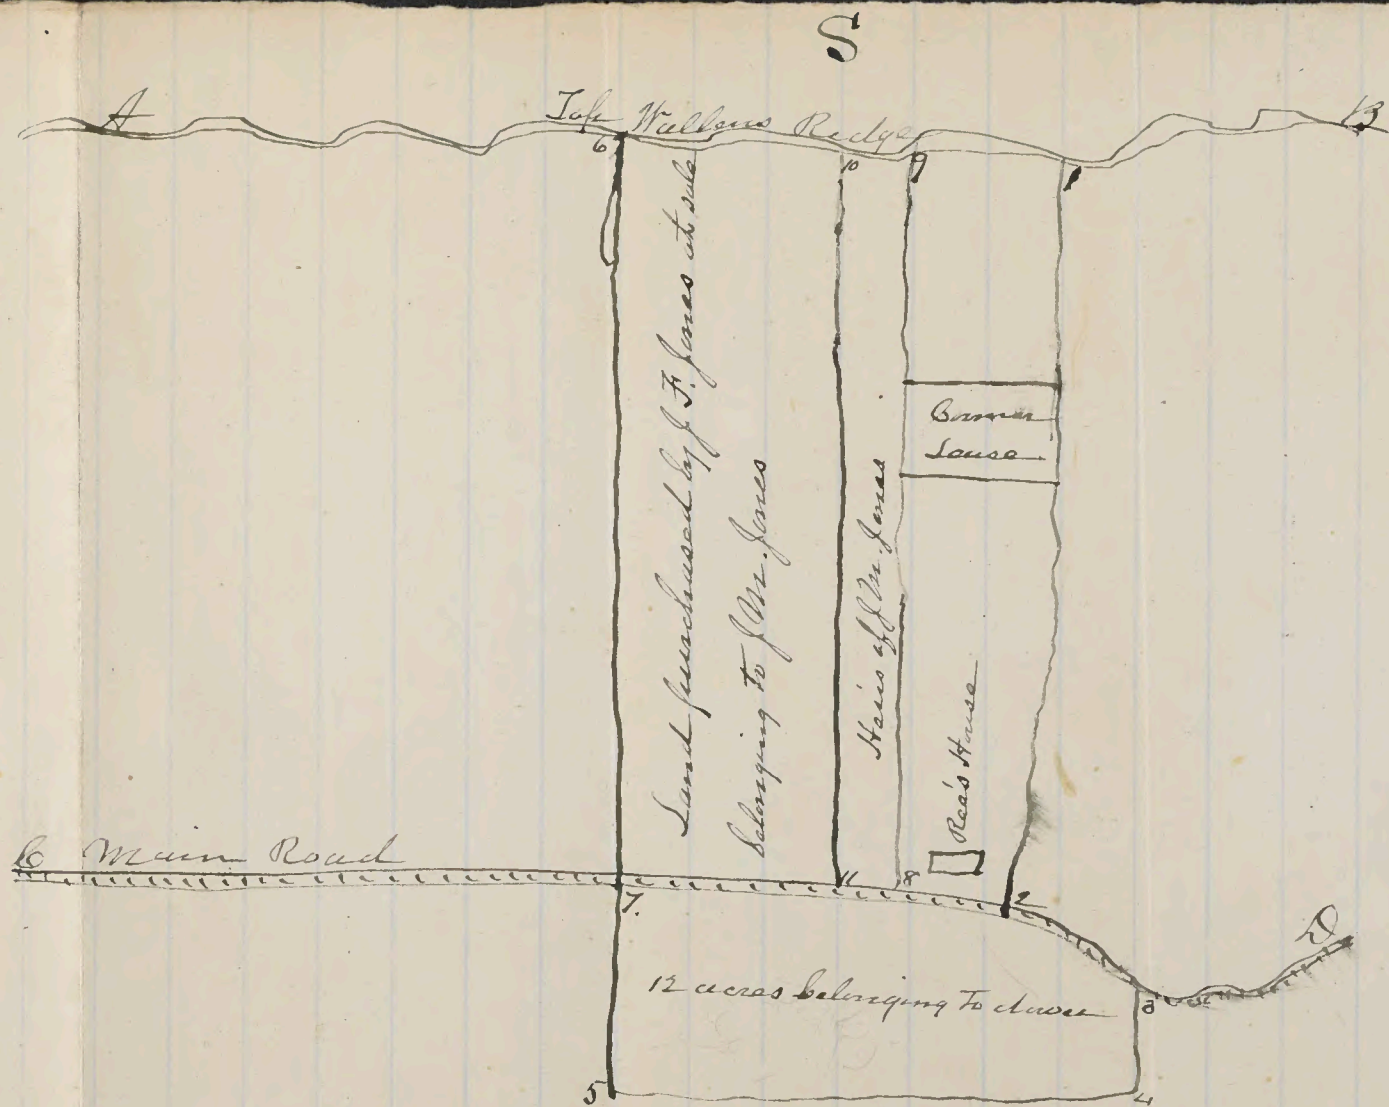 S
A Top Wallens Ridge B
6 10 9 1
Land purchased by J. F. Jones at sale
belonging to J. M. Jones
Heirs of J M. Jones
Lease
Rea's House
C Main Road
7. 11 8 2
D
12 acres belonging to
3
5 4